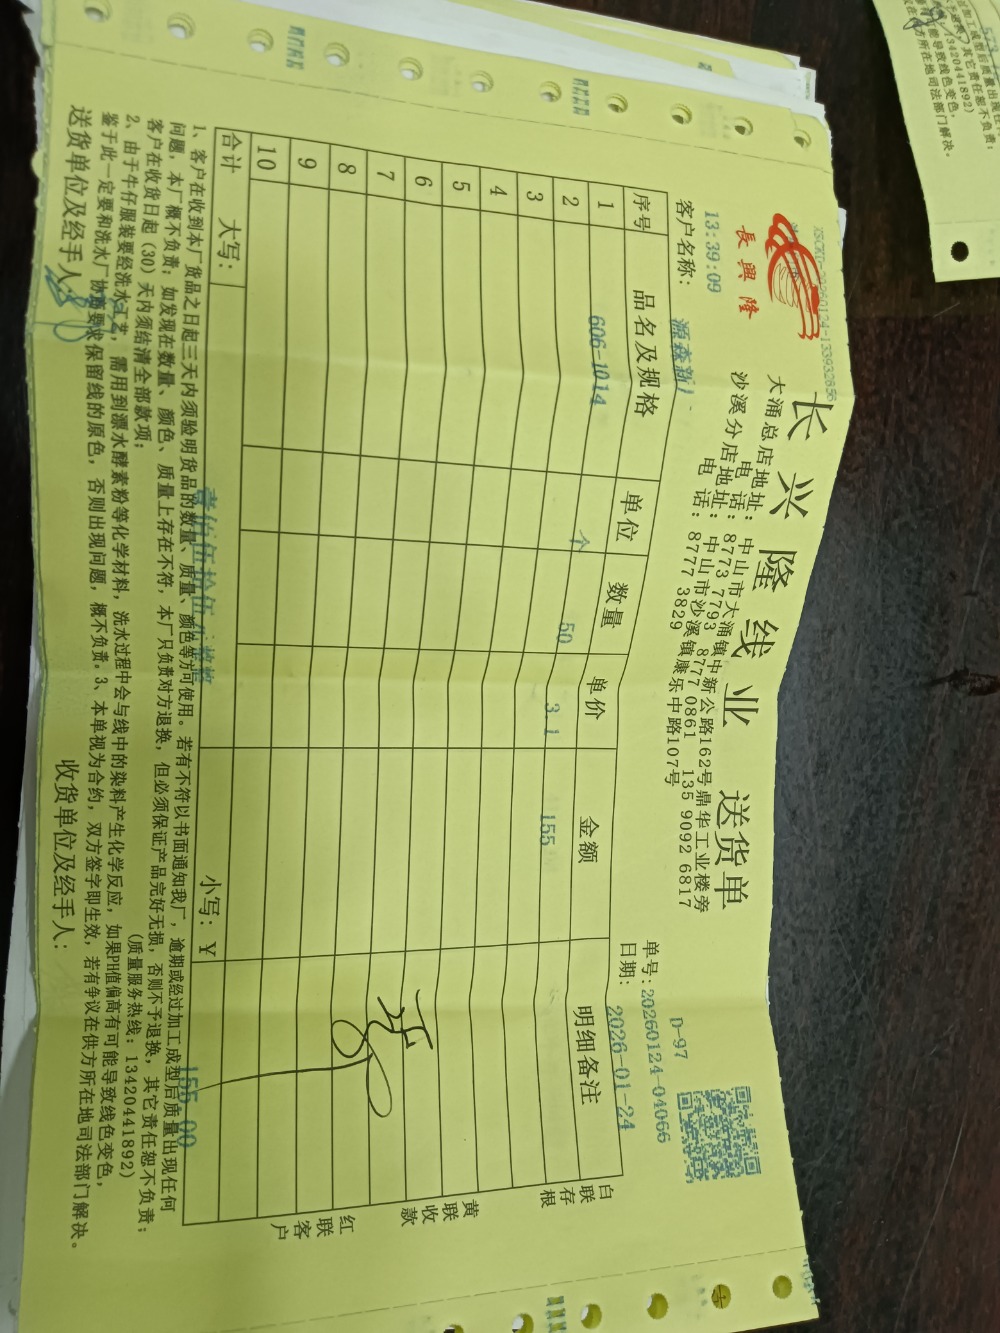 XSCKD-20260124-133932656
長興隆
长兴隆线业 送货单
大涌总店地址: 中山市大涌镇中新公路162号鼎华工业楼旁
电话: 8773 7793 8777 0861 135 9092 6817
沙溪分店地址: 中山市沙溪镇康乐中路107号
电话: 8777 3829
D-97
13:39:09
单号: 20260124-04066
客户名称: 源森新厂
日期: 2026-01-24
序号 品名及规格 单位 数量 单价 金额 明细备注
1 606-1014 个 50 3.1 155
2
3
4
5
6
7
8
9
10
合计 大写: 壹佰伍拾伍元整 小写: ¥ 155.00
白联存根
黄联收款
红联客户
1、客户在收到本厂货品之日起三天内须验明货品的数量、质量、颜色等方可使用。若有不符以书面通知我厂，逾期或经过加工成型后质量出现任何
问题，本厂概不负责；如发现在数量、颜色、质量上存在不符，本厂只负责对方退换，但必须保证产品完好无损，否则不予退换，其它责任恕不负责；
客户在收货日起（30）天内须结清全部款项； (质量服务热线: 13420441892)
2、由于牛仔服装要经洗水工艺，需用到漂水酵素粉等化学材料，洗水过程中会与线中的染料产生化学反应，如果PH值偏高有可能导致线色变色，
鉴于此一定要和洗水厂协商要求保留线的原色，否则出现问题，概不负责。3、本单视为合约，双方签字即生效，若有争议在供方所在地司法部门解决。
送货单位及经手人: 收货单位及经手人:
加工成型后质量出现任
其它责任恕不负责;
13420441892)
可能导致线色变色,
方所在地司法部门解决。